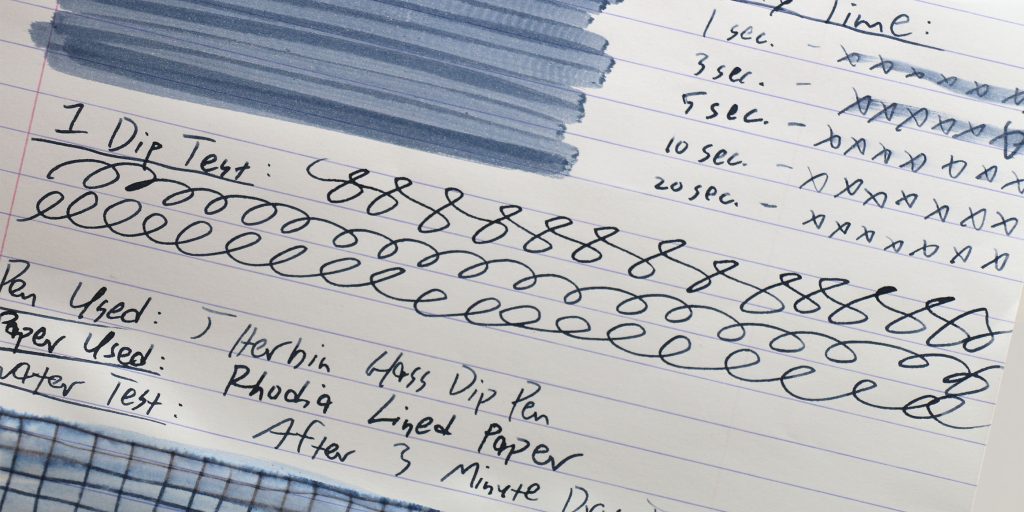 Time:
1 sec. - x x x x x x
3 sec. - x x x x x x
5 sec. - x x x x x x x
10 sec. - x x x x x x x
20 sec. - x x x x x x x
1 Dip Test:
Pen Used: J Herbin Glass Dip Pen
Paper Used: Rhodia Lined Paper
Water Test: After 3 Minute